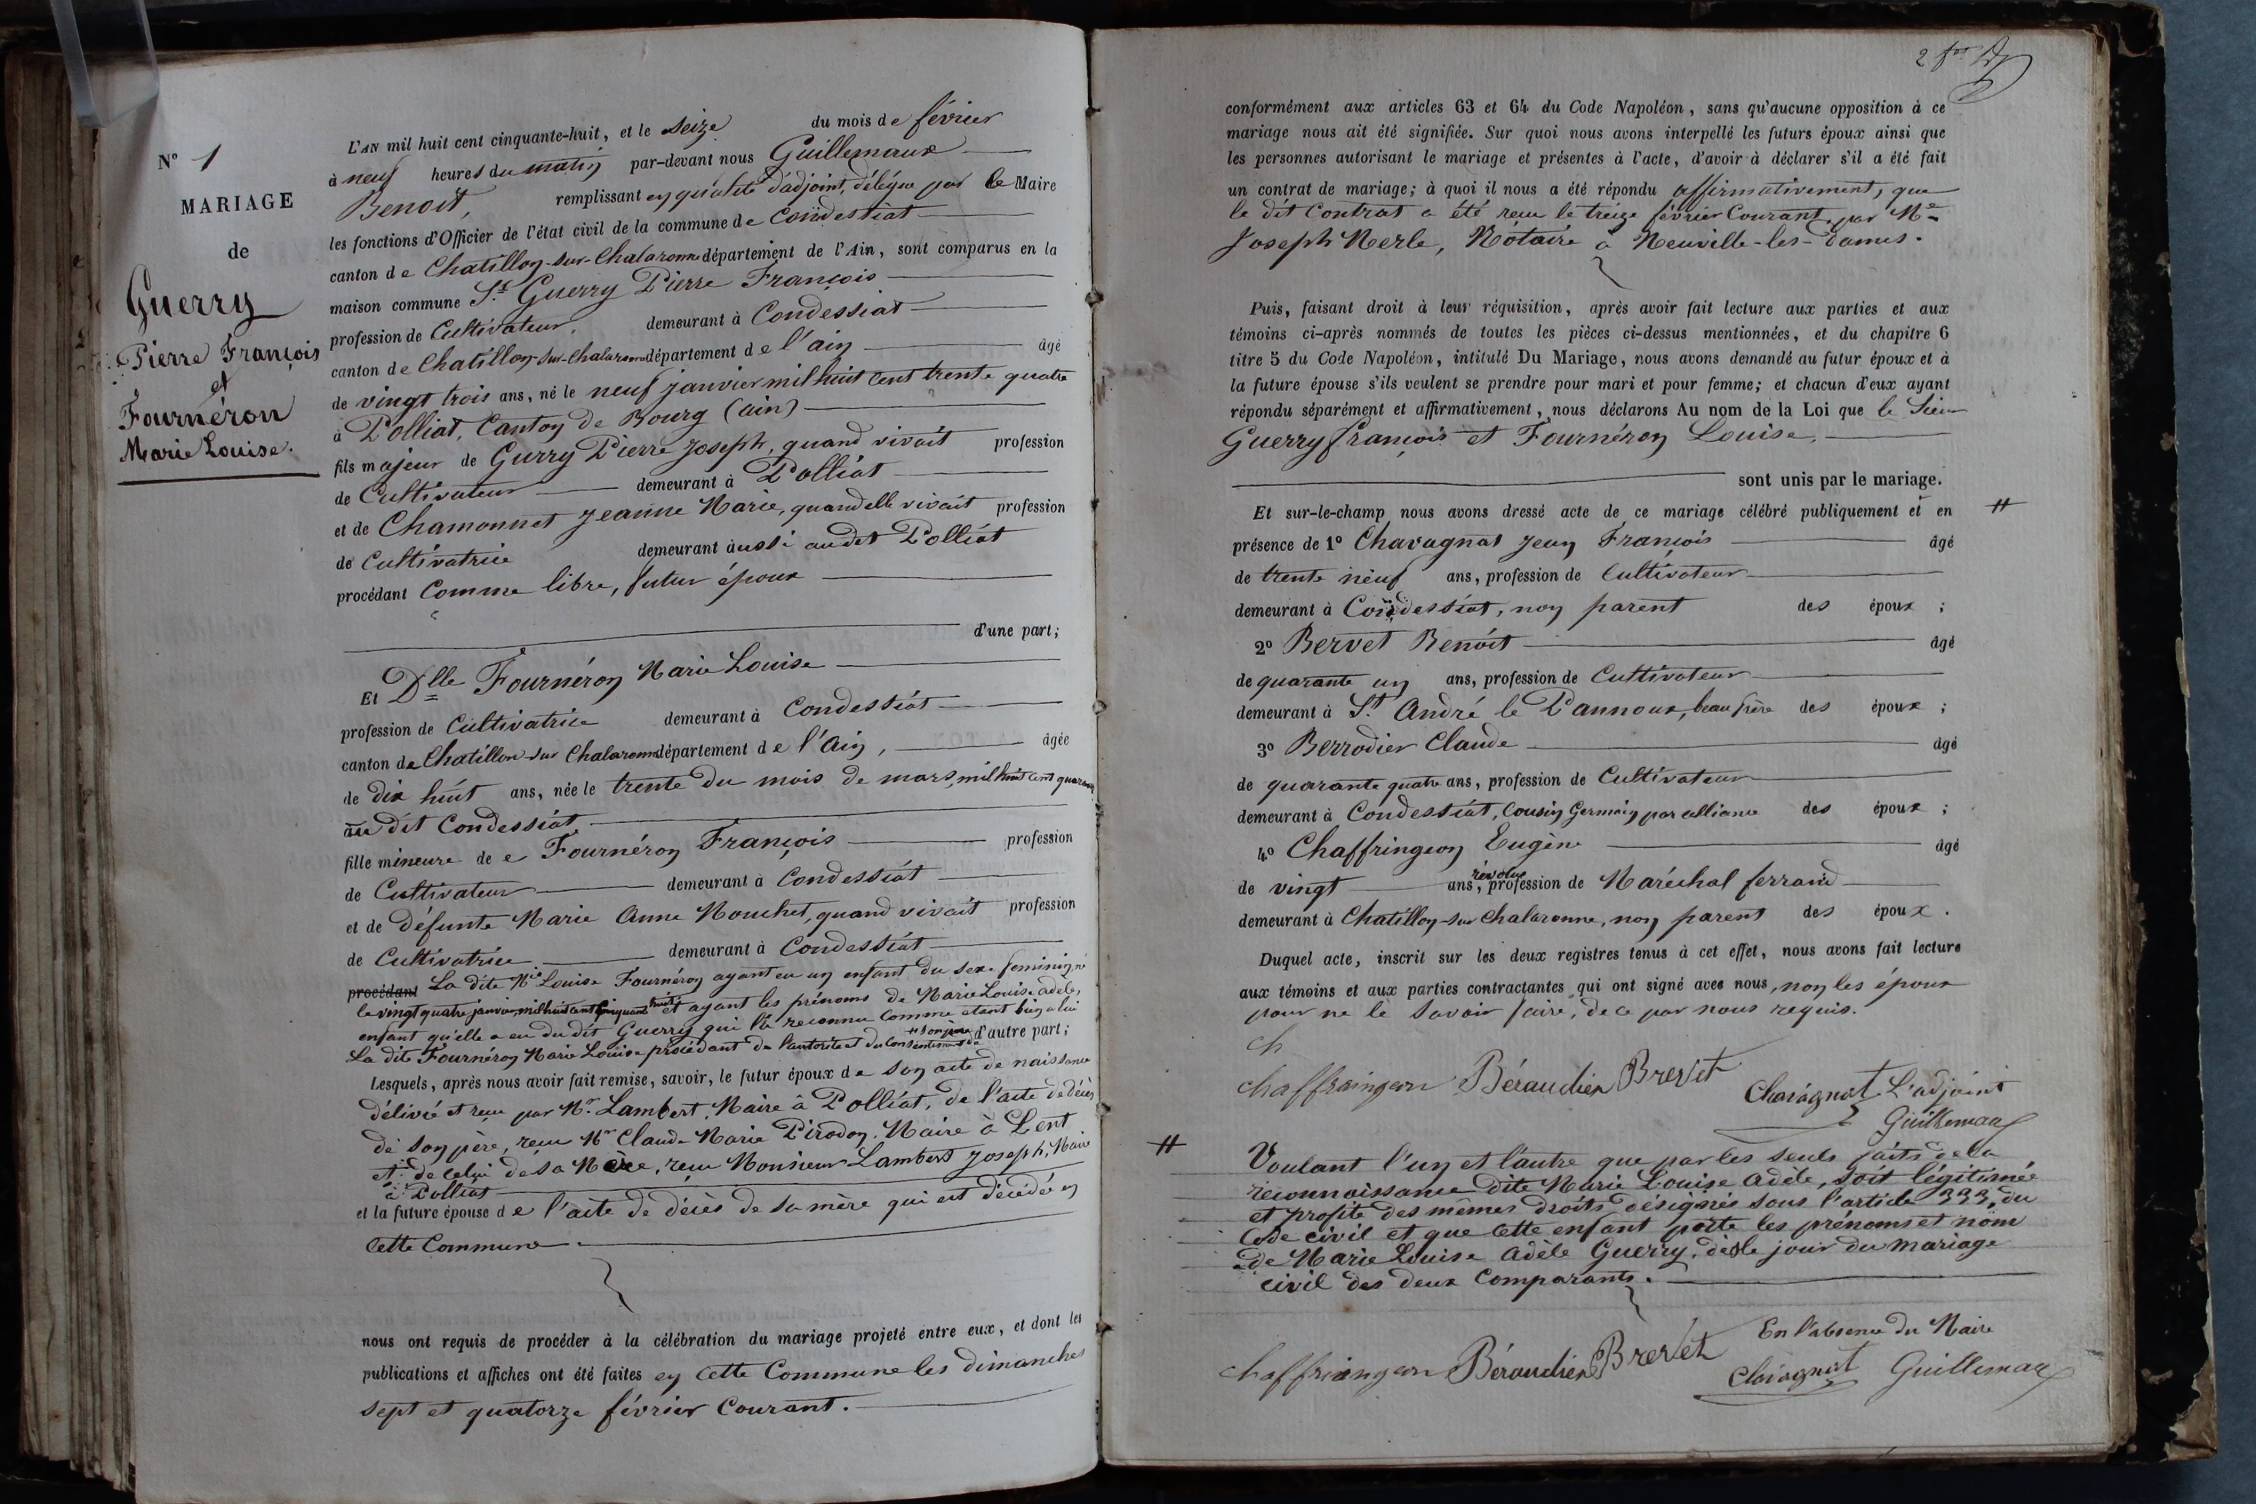 N° 1
MARIAGE
de
Guerry
Pierre François
et
Fournéron
Marie Louise.
L'AN mil huit cent cinquante-huit, et le seize du mois de février
à neuf heures du matin par-devant nous Guillemaux
Benoit, remplissant en qualité d'adjoint, délégué par le Maire
les fonctions d'Officier de l'état civil de la commune de Condessiat
canton de Chatillon-sur-Chalaronne département de l'Ain, sont comparus en la
maison commune Sr. Guerry Pierre François
profession de Cultivateur, demeurant à Condessiat
canton de Chatillon-sur-Chalaronne département de l'ain âgé
de vingt trois ans, né le neuf janvier mil huit cent trente quatre
à Polliat, Canton de Bourg (ain)
fils majeur de Gurry Pierre Joseph, quand vivait profession
de Cultivateur demeurant à Polliat
et de Chamonnet Jeanne Marie, quand elle vivait profession
de Cultivatrice demeurant aussi audit Polliat
procédant Comme libre, futur époux
d'une part;
Et Dlle Fournéron Marie Louise
profession de Cultivatrice demeurant à Condessiat
canton de Chatillon-sur Chalaronne département de l'Ain, âgée
de dix huit ans, née le trente du mois de mars, mil huit cent quarante
au dit Condessiat
fille mineure de Fournéron François profession
de Cultivateur demeurant à Condessiat
et de défunte Marie Anne Mouchet, quand vivait profession
de Cultivatrice. demeurant à Condessiat
procédant La dite Mie Louise Fournéron ayant eu un enfant du sexe feminin, né
le vingt quatre janvier, mil huit cent cinquante huit et ayant les prénoms de Marie Louise adèle,
enfant qu'elle a eu du dit Guerry qui l'a reconnu comme étant bien à lui
La dite Fournéron Marie Louise procédant de l'autorité et du Consentement de son père d'autre part;
Lesquels, après nous avoir fait remise, savoir, le futur époux de son acte de naissance
délivré et reçu par Mr. Lambert, Maire à Polliat, de l'acte de décès
de son père, reçu Mr Claude Marie Pirodon, Maire à Lent
et de celui de sa Mère, reçu Monsieur Lambert Joseph, Maire
à Polliat
et la future épouse de l'acte de décès de sa mère qui est décédée en
Cette Commune.
nous ont requis de procéder à la célébration du mariage projeté entre eux, et dont les
publications et affiches ont été faites en Cette Commune les dimanches
sept et quatorze février Courant.
conformément aux articles 63 et 64 du Code Napoléon, sans qu'aucune opposition à ce
mariage nous ait été signifiée. Sur quoi nous avons interpellé les futurs époux ainsi que
les personnes autorisant le mariage et présentes à l'acte, d'avoir à déclarer s'il a été fait
un contrat de mariage; à quoi il nous a été répondu affirmativement, que
le dit Contrat a été reçu le treize février Courant, par Me
Joseph Merle, Notaire à Neuville-les-Dames.
Puis, faisant droit à leur réquisition, après avoir fait lecture aux parties et aux
témoins ci-après nommés de toutes les pièces ci-dessus mentionnées, et du chapitre 6
titre 5 du Code Napoléon, intitulé Du Mariage, nous avons demandé au futur époux et à
la future épouse s'ils veulent se prendre pour mari et pour femme; et chacun d'eux ayant
répondu séparément et affirmativement, nous déclarons Au nom de la Loi que le Sieur
Guerry françois et Fournéron Louise,
sont unis par le mariage.
Et sur-le-champ nous avons dressé acte de ce mariage célébré publiquement et en #
présence de 1° Chavagnat Jean François âgé
de trente neuf ans, profession de Cultivateur
demeurant à Condessiat, non parent des époux;
2° Bervet Benoit âgé
de quarante un ans, profession de Cultivateur
demeurant à St. André le Pannoux, beau frère des époux;
3° Berrodier Claude âgé
de quarante quatre ans, profession de Cultivateur
demeurant à Condessiat, Cousin Germain par alliance des époux;
4° Chaffringeon Eugène âgé
de vingt ans révolus, profession de Maréchal ferrand
demeurant à Chatillon-sur Chalaronne, non parent des époux.
Duquel acte, inscrit sur les deux registres tenus à cet effet, nous avons fait lecture
aux témoins et aux parties contractantes qui ont signé avec nous, non les époux
pour ne le savoir faire, de ce par nous requis.
Ch
chaffraingeon Béraudier Brevet Chavagnat L'adjoint
Guillemaux
# Voulant l'un et l'autre que par les seuls faits de la
reconnaissance dite Marie Louise Adèle, soit légitimée
et profite des mêmes droits désignés sous l'article 333, du
Code civil et que cette enfant porte les prénoms et nom
de Marie Louise Adèle Guerry, dès le jour du mariage
civil des deux Comparants.
En l'absence du Maire
chaffraingeon Béraudier Brevet Chavagnat Guillemaux